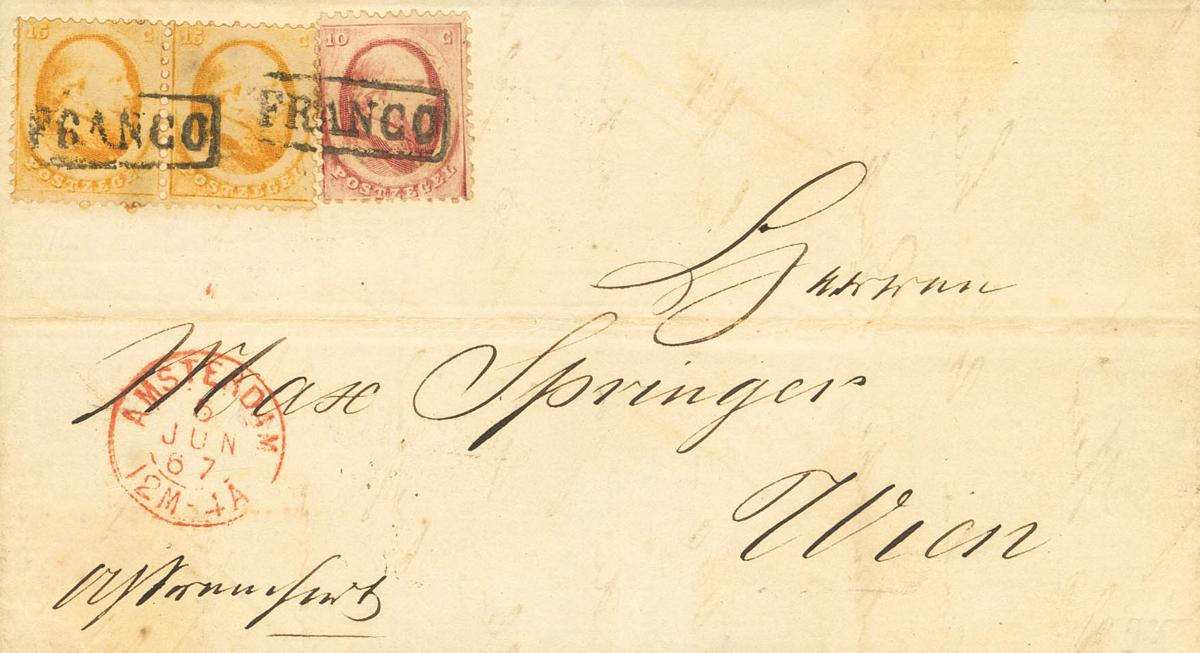 15 C 15 C 10 C
FRANCO FRANCO
POSTZEGEL POSTZEGEL POSTZEGEL
Herren
Max Springer
Wien
AMSTERDAM
6
JUN
67
12M-4A